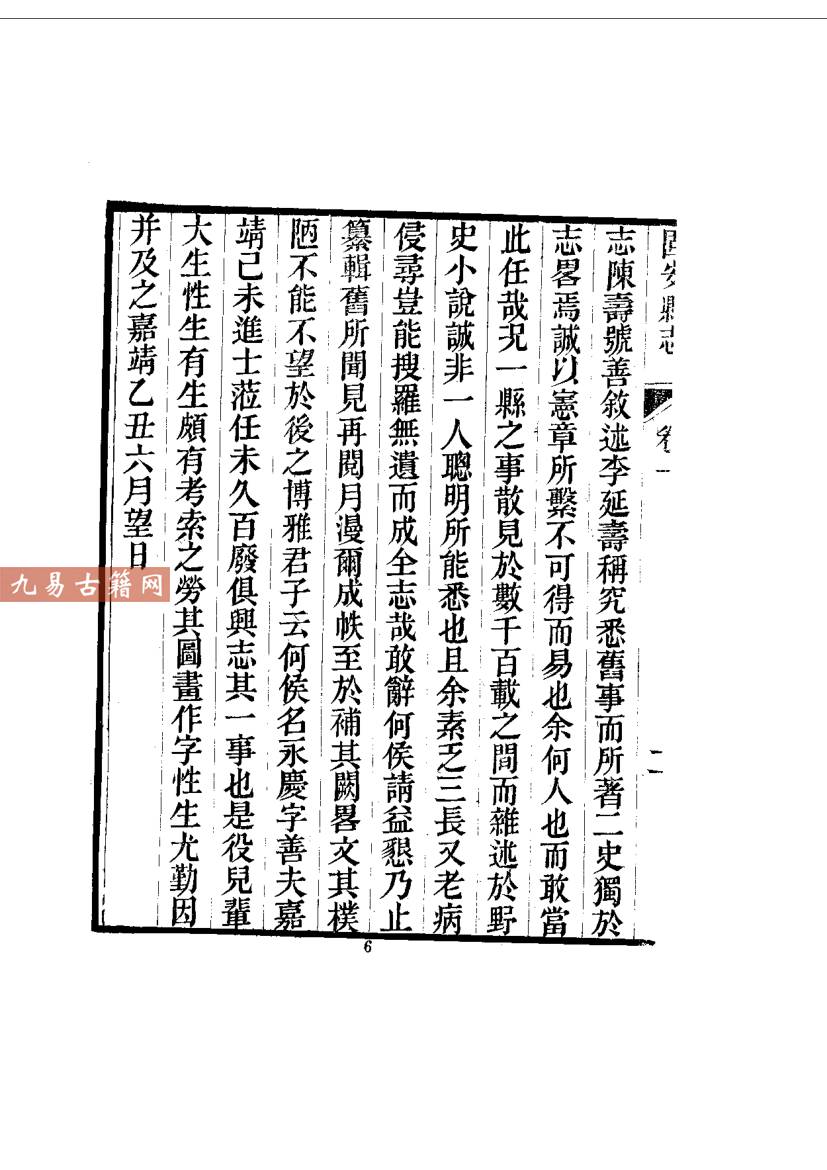 固安縣志
卷一
二
志陳壽號善敘述李延壽稱究悉舊事而所著二史獨於
志畧焉誠以憲章所繫不可得而易也余何人也而敢當
此任哉况一縣之事散見於數千百載之間而雜述於野
史小說誠非一人聰明所能悉也且余素乏三長又老病
侵尋豈能搜羅無遺而成全志哉敢辭何侯請益懇乃止
纂輯舊所聞見再閱月漫爾成帙至於補其闕畧文其樸
陋不能不望於後之博雅君子云何侯名永慶字善夫嘉
靖己未進士蒞任未久百廢俱興志其一事也是役兒輩
大生性生有生頗有考索之勞其圖畫作字性生尤勤因
并及之嘉靖乙丑六月望日
九易古籍网
6